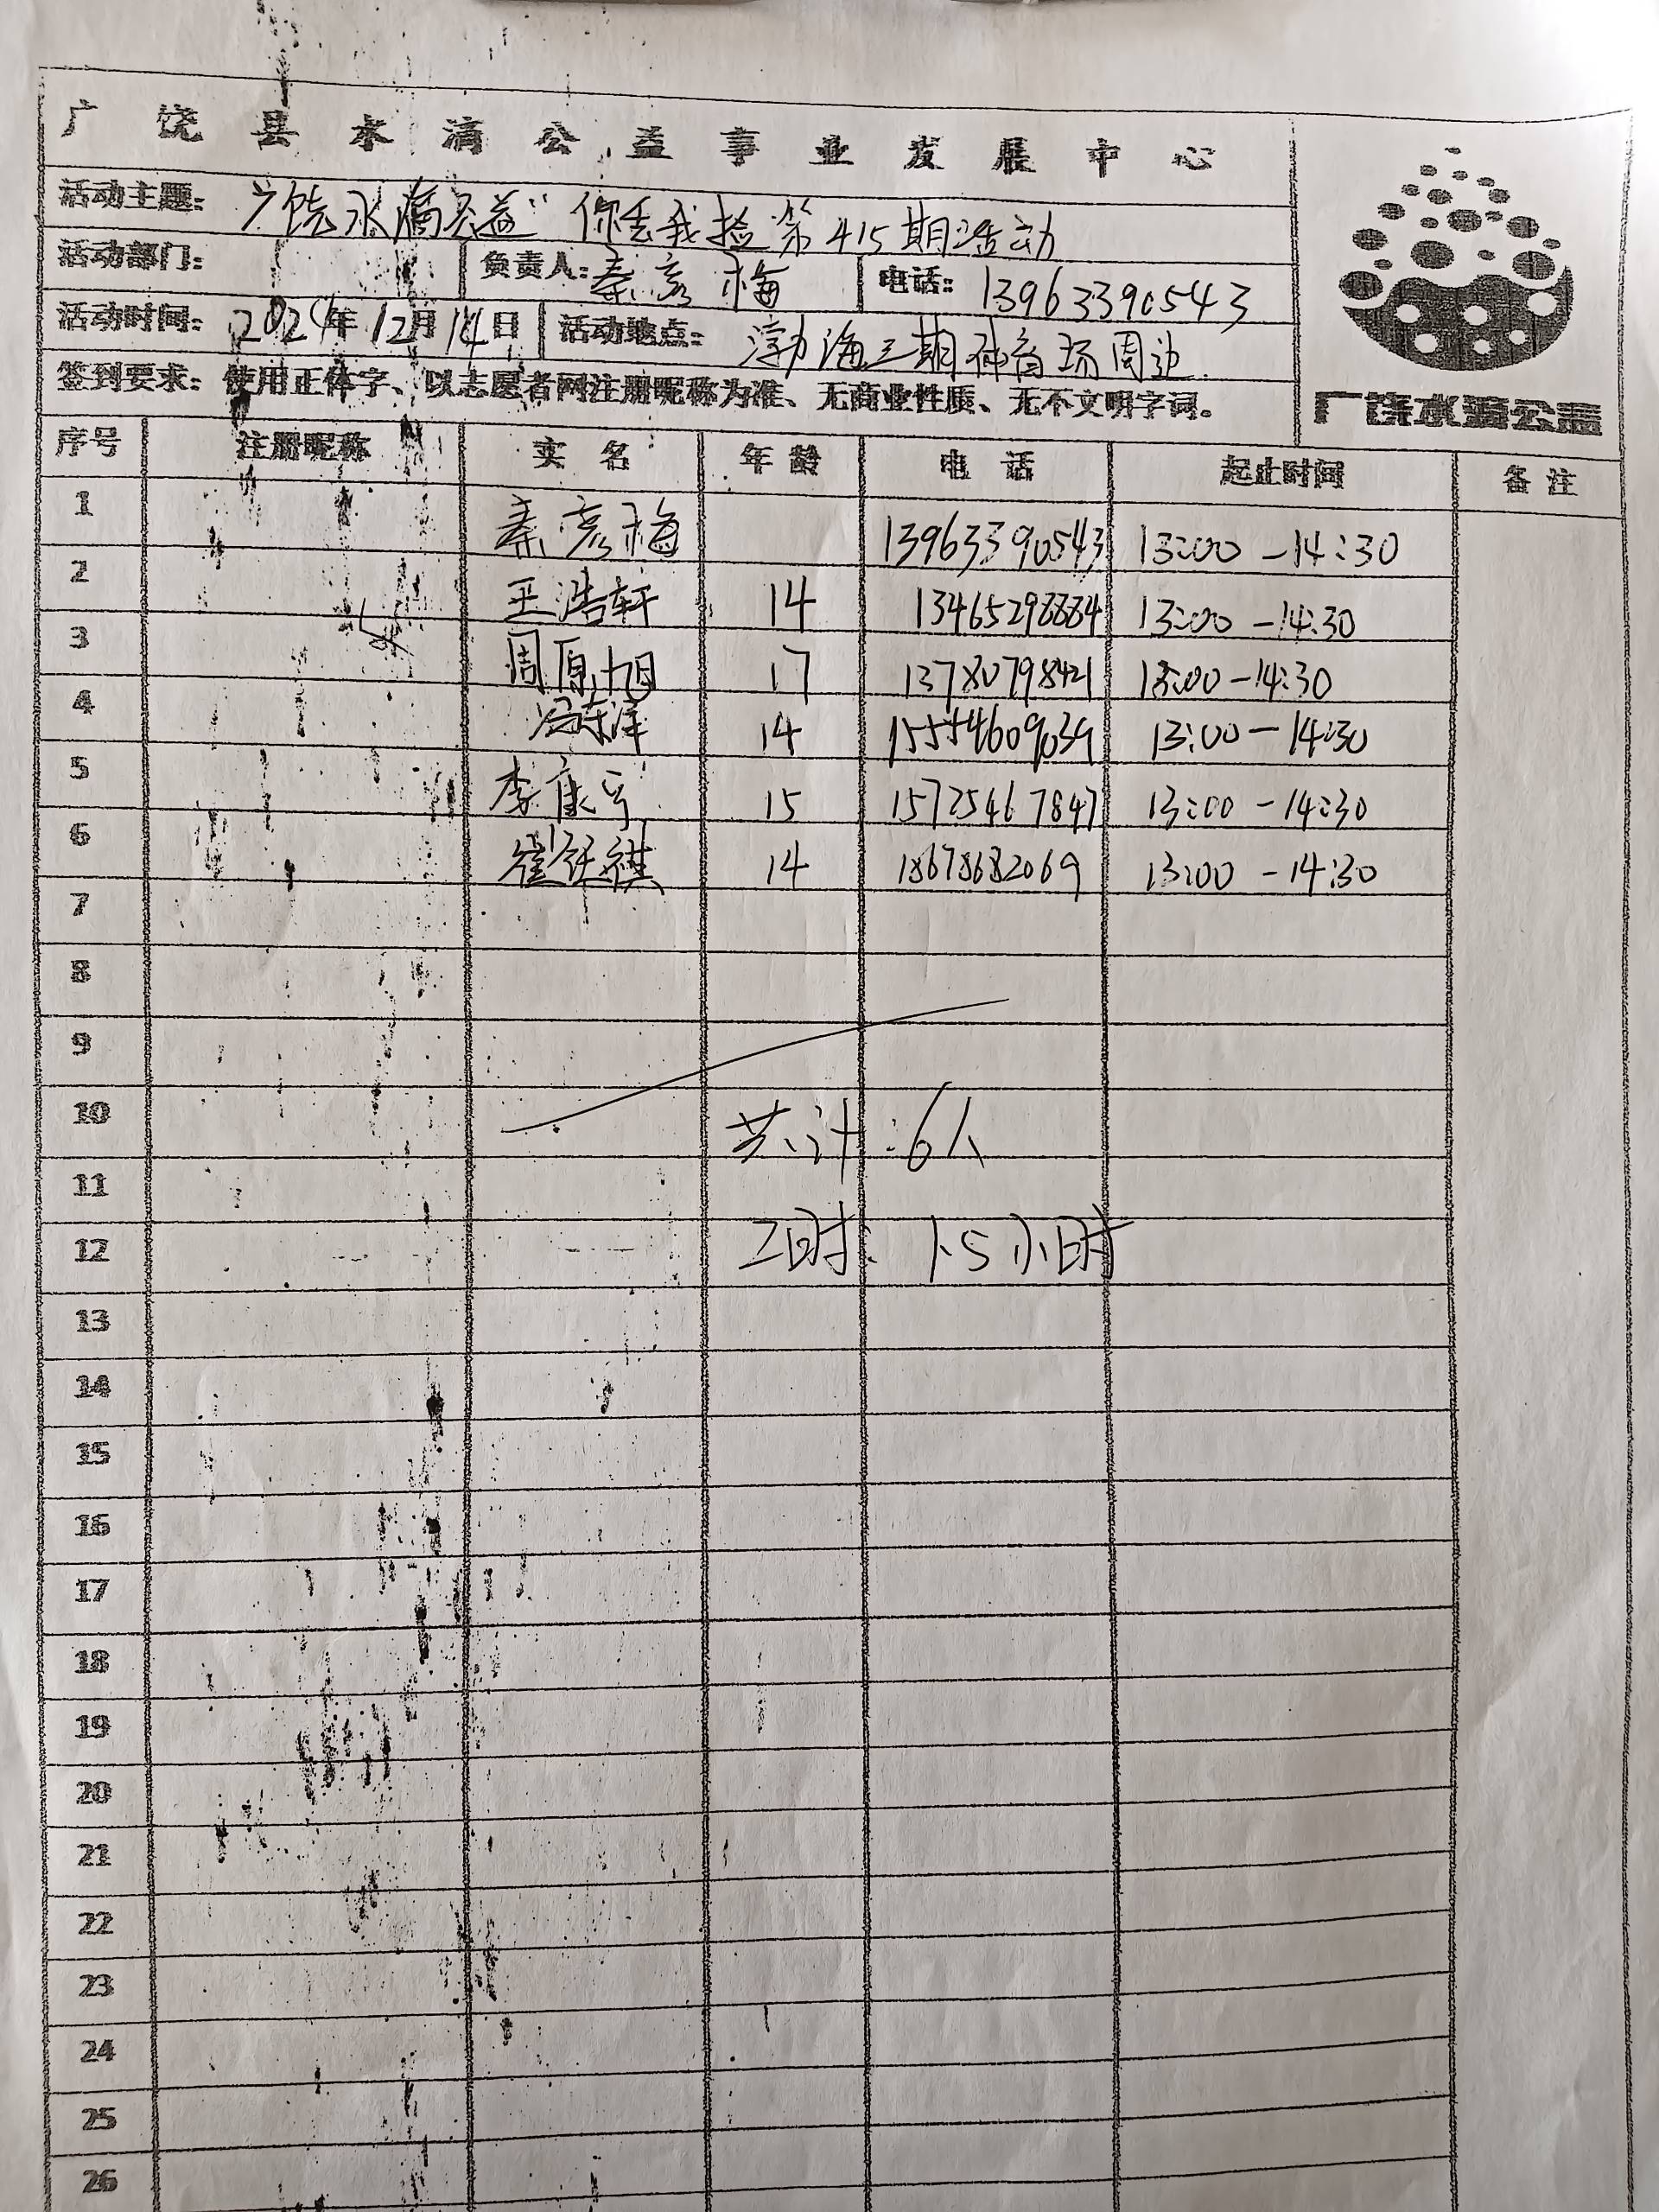 广饶县水滴公益事业发展中心
活动主题: 广饶水滴公益"你丢我捡第415期活动
活动部门: 负责人: 秦彦梅 电话: 13963390543
活动时间: 2024年12月14日 活动地点: 渤海三期体育场周边.
签到要求: 使用正体字、以志愿者网注册昵称为准、无商业性质、无不文明字词。
广饶水滴公益
序号 注册昵称 实名 年龄 电话 起止时间 备注
1 秦彦梅 13963390543 13:00-14:30
2 王浩轩 14 13465298884 13:00-14:30
3 周原旭 17 13780798421 13:00-14:30
4 冯东洋 14 15554609039 13:00-14:30
5 李康宁 15 15725467847 13:00-14:30
6 崔钰祺 14 18678682069 13:00-14:30
7
8
9
10 共计:6人
11
12 工时: 1.5小时
13
14
15
16
17
18
19
20
21
22
23
24
25
26